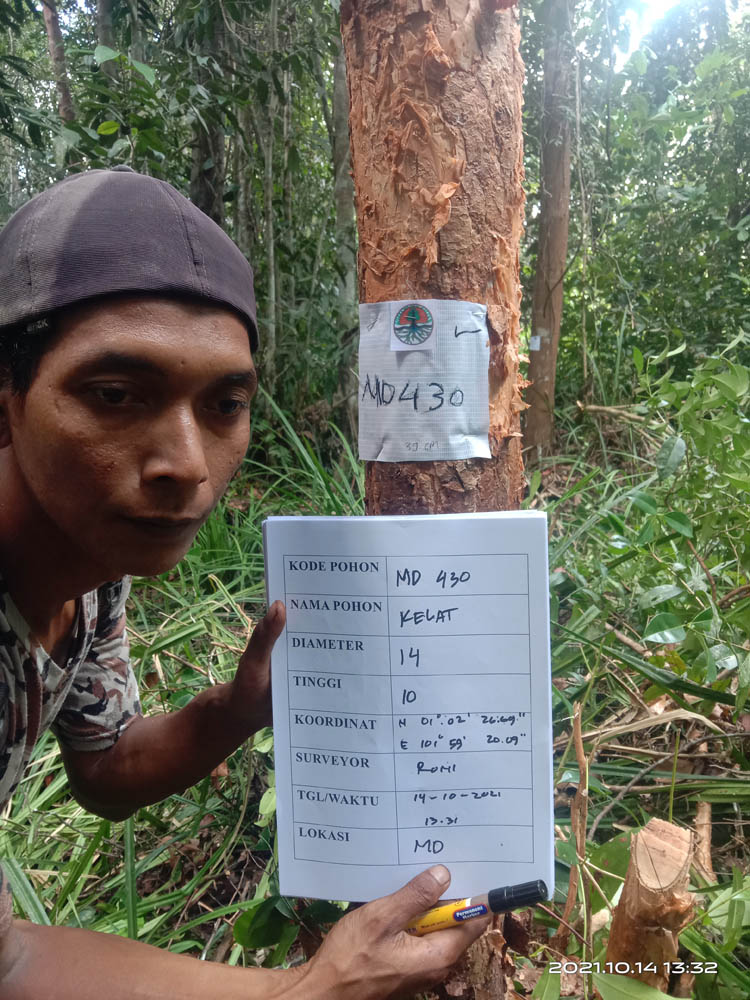 MD430
39 cm
KODE POHON MD 430
NAMA POHON KELAT
DIAMETER 14
TINGGI 10
KOORDINAT N 01°.02' 26.69"
E 101° 59' 20.09"
SURVEYOR ROMI
TGL/WAKTU 14-10-2021
13.31
LOKASI MD
Permanent
Marker
2021.10.14 13:32